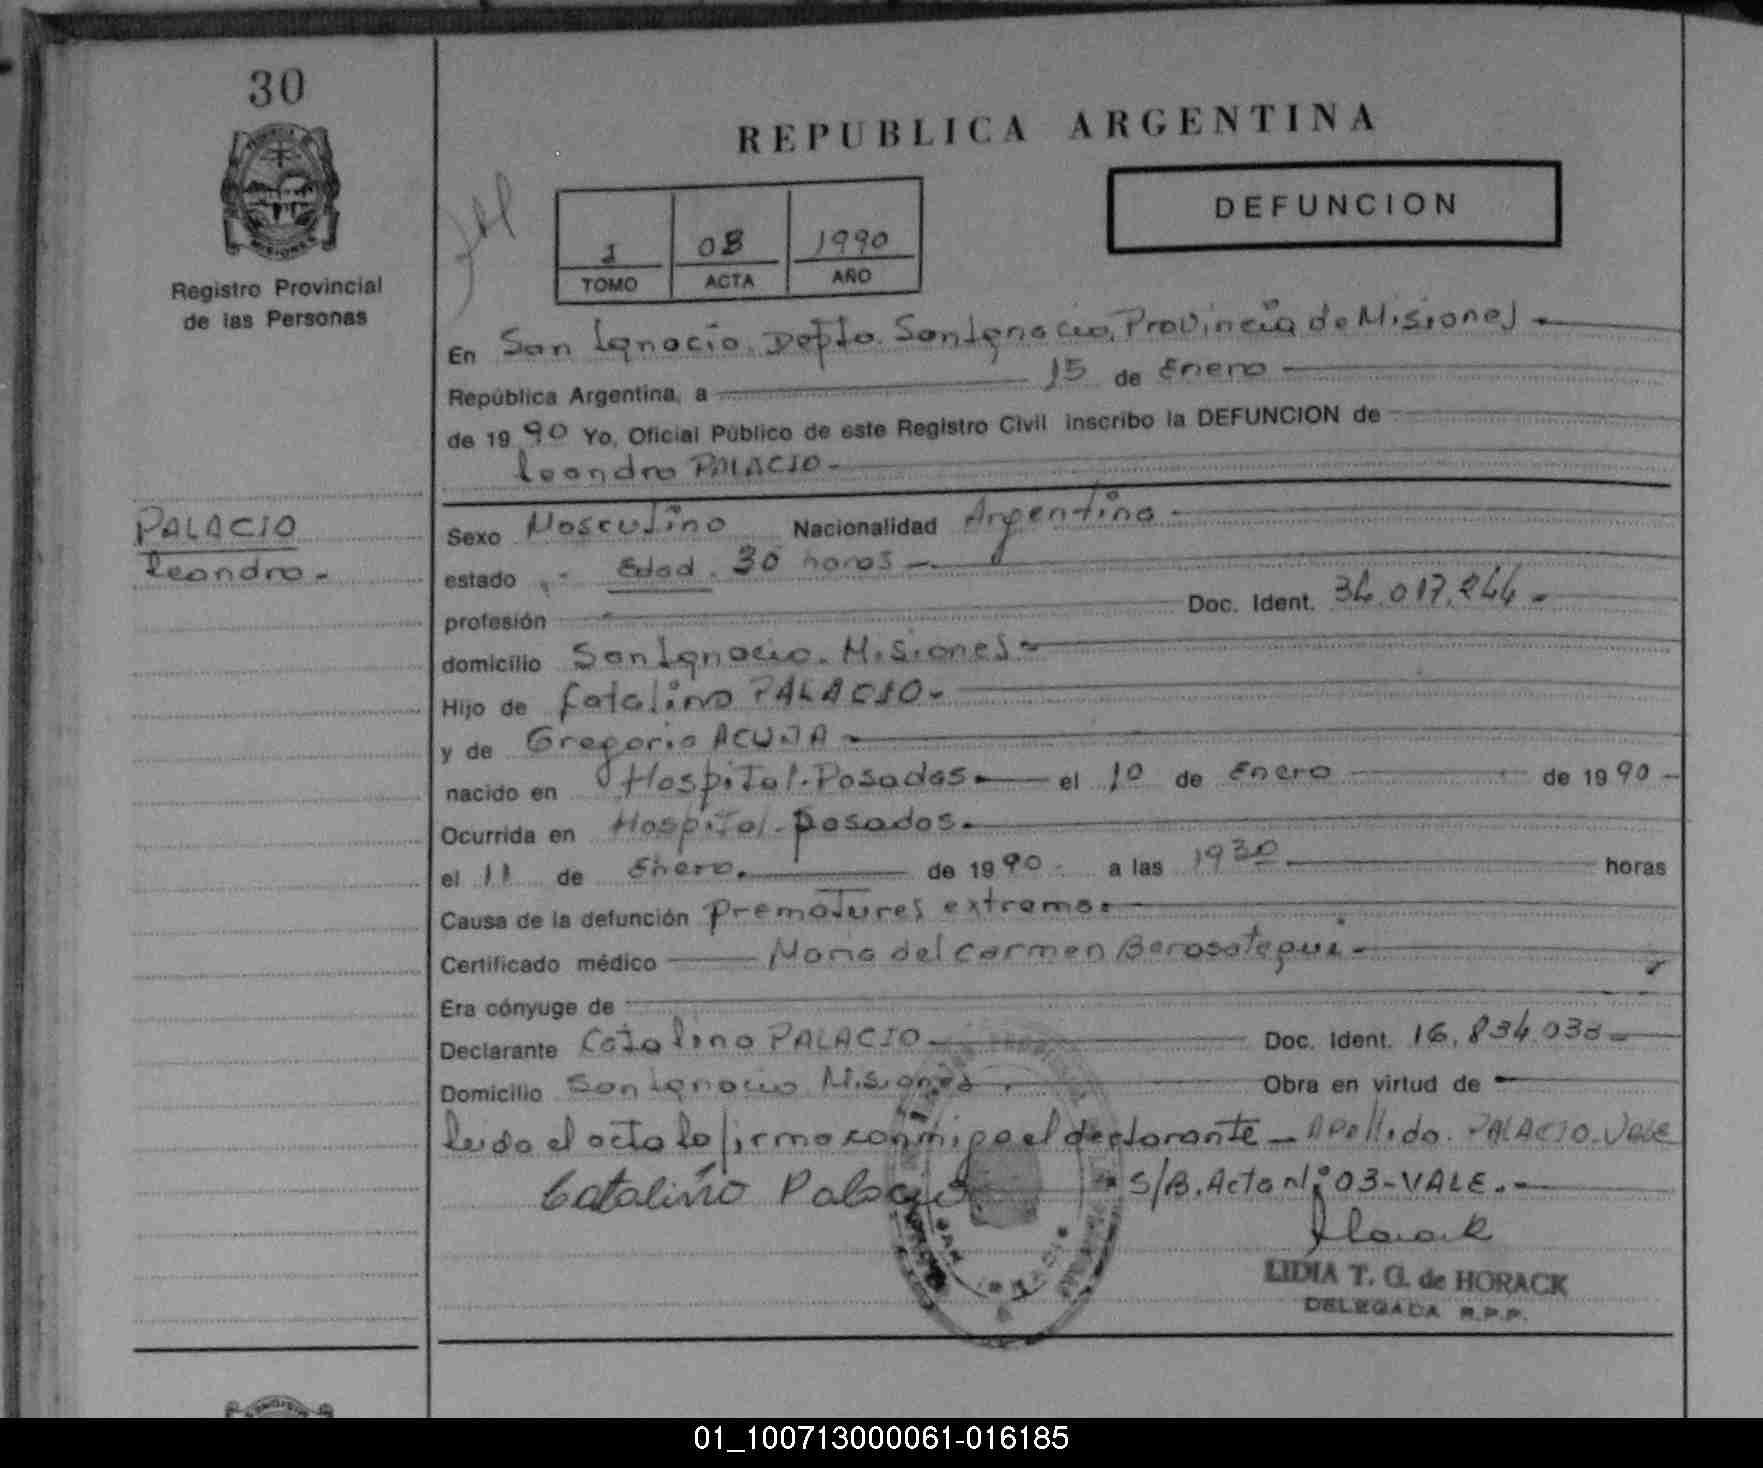 30
REPUBLICA ARGENTINA
DEFUNCION
1 08 1990
TOMO ACTA AÑO
MISIONES
Registro Provincial
de las Personas
En San Ignacio. Depto. San Ignacio, Provincia de Misiones
República Argentina, a 15 de Enero
de 1990 Yo, Oficial Público de este Registro Civil inscribo la DEFUNCION de
Leandro PALACIO.-
PALACIO
Leandro.-
Sexo Masculino Nacionalidad Argentina
estado Edad. 30 horas
profesión Doc. Ident. 34.017.244.-
domicilio San Ignacio. Misiones
Hijo de Catalino PALACIO.-
y de Gregoria ACUÑA
nacido en Hospital. Posadas el 10 de Enero de 1990
Ocurrida en Hospital. Posadas.
el 11 de Enero. de 1990 a las 1930 horas
Causa de la defunción Prematures extrama.
Certificado médico Maria del Carmen Berasategui
Era cónyuge de
Declarante Catalino PALACIO Doc. Ident. 16.834.038
Domicilio San Ignacio Misiones Obra en virtud de
Leida el acta la firma conmigo el declarante - Apellido. PALACIO. Vale
Catalino Palacio S/B. Acta Nº 03-VALE.-
Horack
LIDIA T. G. de HORACK
DELEGADA R.P.P.
01_100713000061-016185